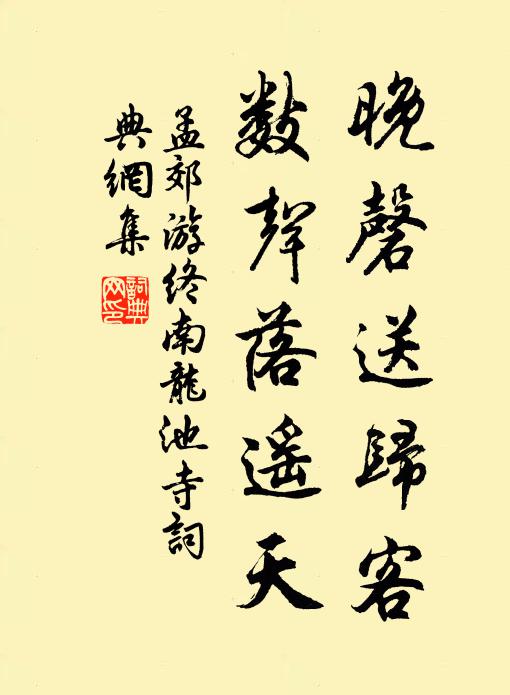 晚磬送歸客
數聲落遥天
孟郊游终南龍池寺詞
典網集
詞典
网印